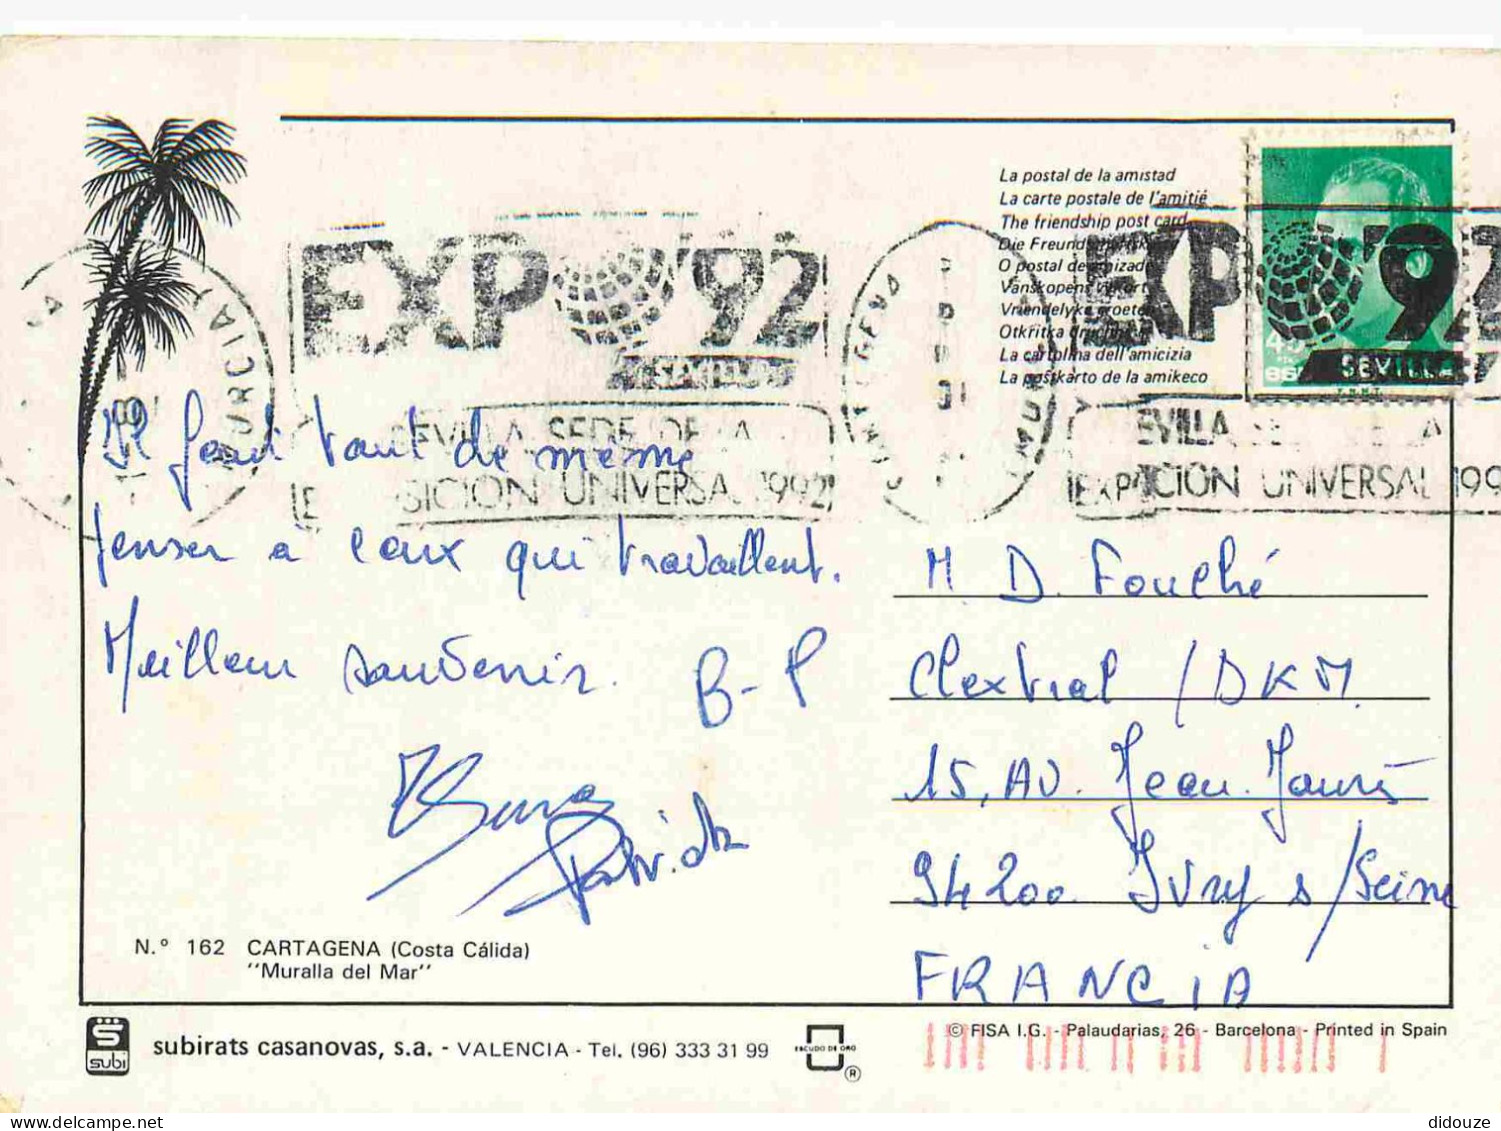 La postal de la amistad
La carte postale de l'amitié
The friendship post card
Die Freundschaftskarte
O postal de amizade
Vänskopens vykort
Vriendelyke groeten
Otkritka druzhbi
La cartolina dell'amicizia
La poŝtkarto de la amikeco
EXPO '92
SEVILLA
SEVILLA SEDE DE LA
EXPOSICION UNIVERSAL 1992
MURCIA
CARTAGENA
MURCIA
EXPO '92
SEVILLA
SEVILLA SEDE DE LA
EXPOSICION UNIVERSAL 1992
Il faut tout de meme
penser à ceux qui travaillent.
Meilleur souvenir. B-P
M. D. Fouché
Clextral / DKM.
15, AV. Jean Jaurès
94200 Ivry s/Seine
FRANCIA
N.º 162 CARTAGENA (Costa Cálida)
"Muralla del Mar"
subi
subirats casanovas, s.a. - VALENCIA - Tel. (96) 333 31 99
ESCUDO DE ORO
®
© FISA I.G. - Palaudarias, 26 - Barcelona - Printed in Spain
didouze